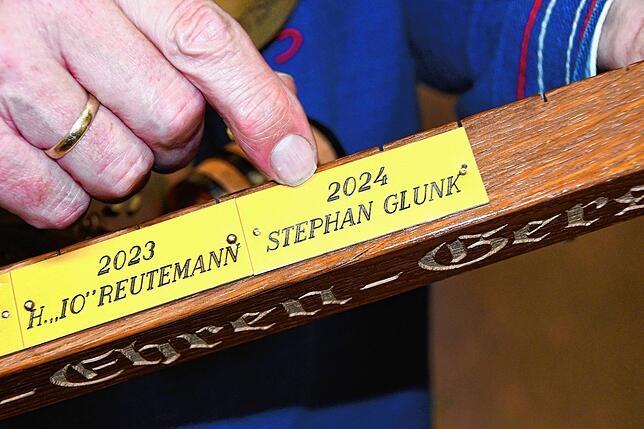 2023
H.„IO” REUTEMANN
2024
STEPHAN GLUNK
– Ehren – Gers